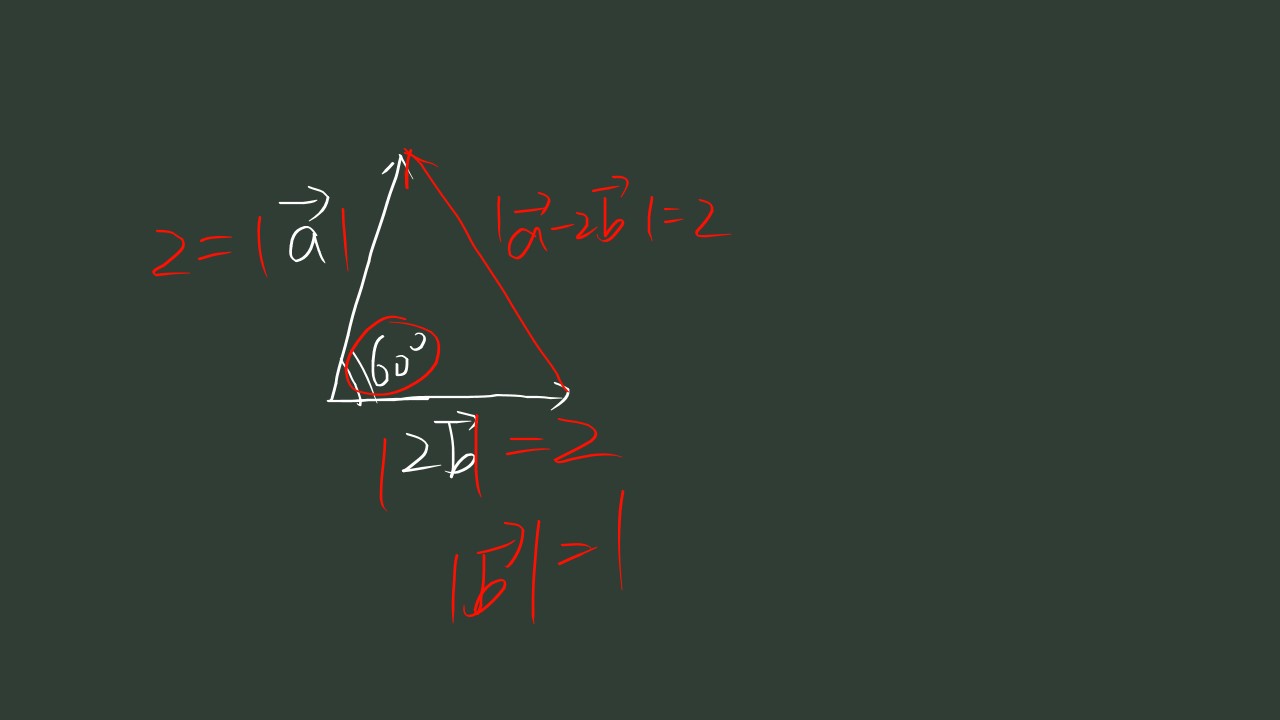 2=|a⃗|
|a⃗-2b⃗|=2
60°
|2b⃗|=2
|b⃗|=1